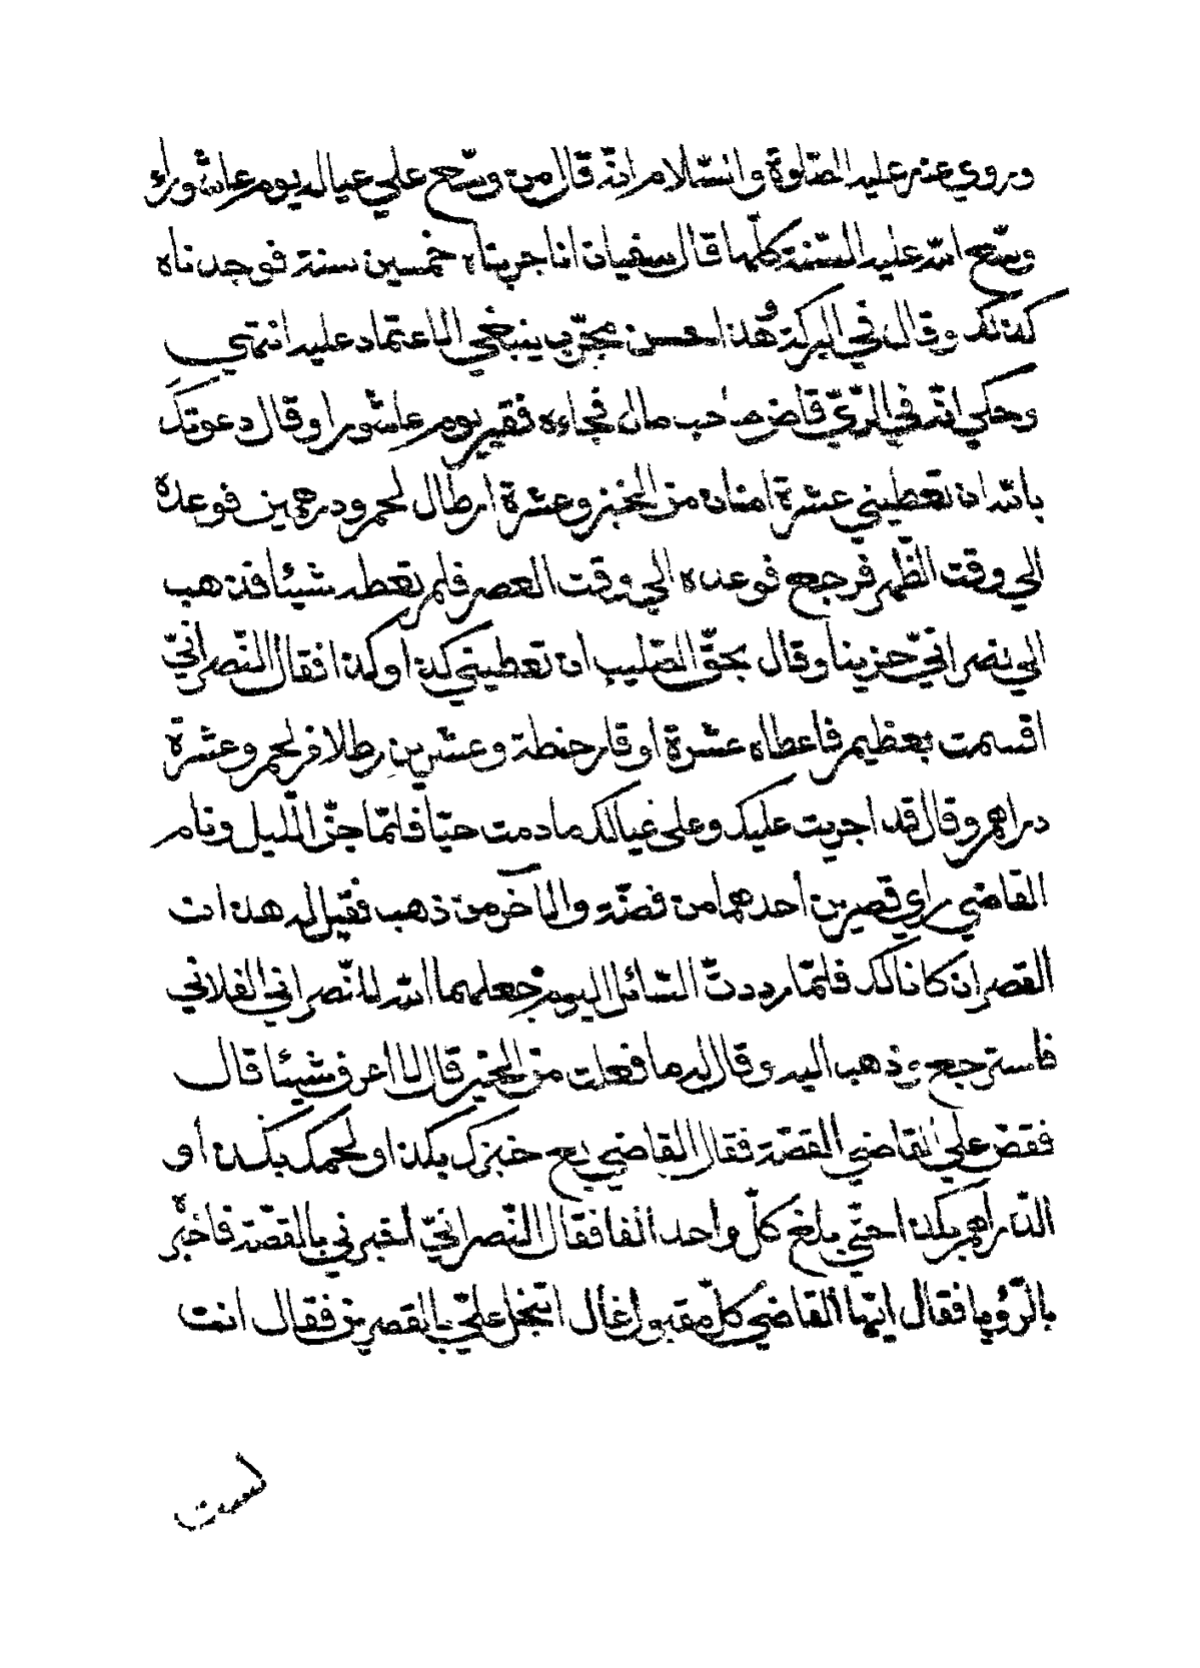 وروي عنه عليه الصّلوة والسّلام انّه قال من وسّع علي عياله يوم عاشوراء
وسّع الله عليه السّنة كلّها قال سفيان انا جربناه خمسين سنة فوجدناه
كذلك وقال في البركة هذا حسن مجرّب ينبغي الاعتماد عليه انتهي
وحكي انّه في الرّيّ قاض صاحب مال فجاءه فقير يوم عاشورا وقال دعوتك
بالله ان تعطيني عشرة امنان من الخبز وعشرة ارطال لحم ودرهمين فوعده
الي وقت الظّهر فرجع فوعده الي وقت العصر فلم تعطه شيئا فذهب
الي نصرانيّ حزينا وقال بحقّ الصّليب ان تعطيني كذا وكذا فقال النّصرانيّ
اقسمت بعظيم فاعطاه عشرة اوقار حنطة وعشرين رطلا من لحم وعشرة
دراهم وقال قد اجريت عليك وعلى عيالك ما دمت حيّا فلمّا جنّ اللّيل ونام
القاضي راي قصرين أحدهما من فضّة والآخر من ذهب فقيل له هذا ان
القصران كانا لك فلمّا رددتّ السّائل اليوم جعلهما الله للنّصراني الفلاني
فاسترجع وذهب اليه وقال له ما فعلت من الخير قال لا اعرف شيئا قال
فقصّ علي القاضي القصّة فقال القاضي بع خبزك بكذا ولحمك بكذا أو
الدّراهم بكذا حتّي بلغ كلّ واحد الفا فقال النّصرانيّ اخبرني بالقصّة فاخبره
بالرّؤيا فقال ايّها القاضي كلّ مقبول غال اتبخل عليّ بالقصرين فقال انت
لست